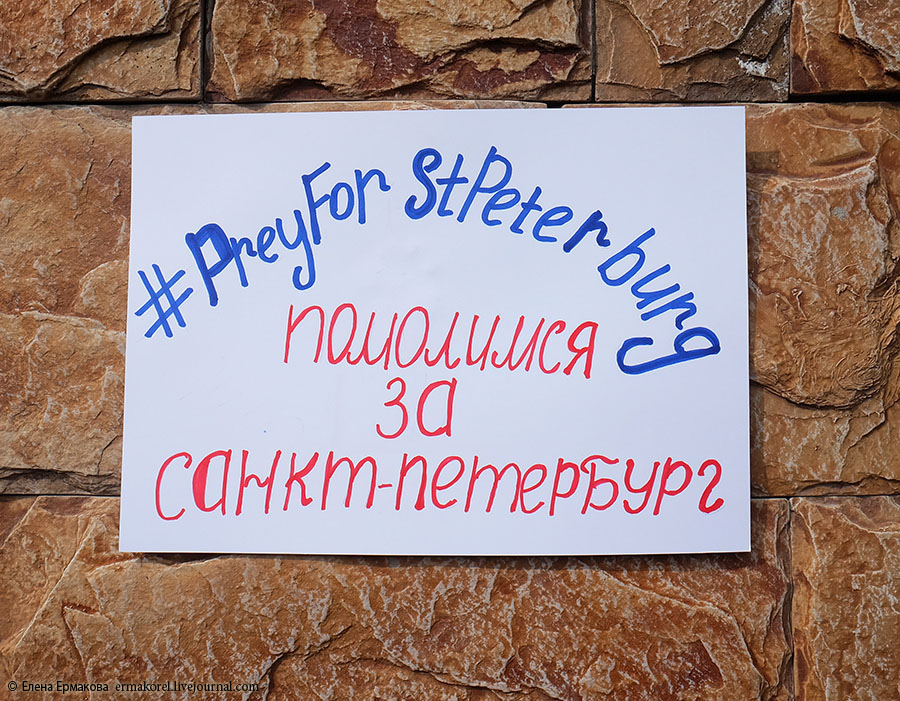 #PreyFor StPeterburg
помолимся
за
санкт-петербург
© Елена Ермакова ermakorel.livejournal.com